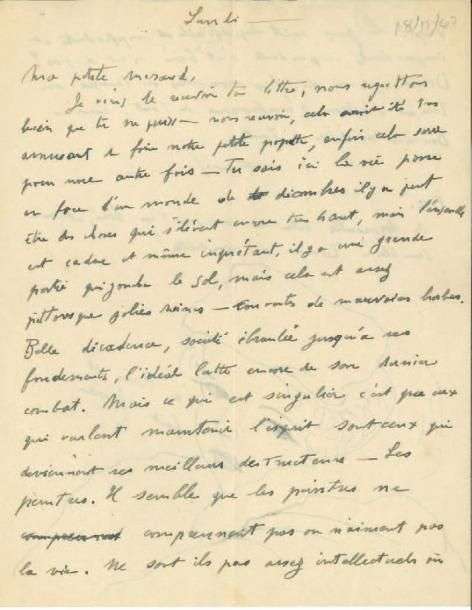 Lundi
18/11/4
Ma petite
Je viens de recevoir ta lettre, nous regrettons
bien que tu ne puisses nous revoir, cela aurait été très
amusant de faire notre petite popote, enfin cela sera
pour une autre fois — Tu sais ici la vie passe
en face d'un monde de décombres il y a peut
être des choses qui s'élèvent encore très haut, mais l'ensemble
est cadre et même inquiétant, il y a une grande
partie qui jonche le sol, mais cela est assez
pittoresque jolies ruines — couvertes de mauvaises herbes.
Belle décadence, société ébranlée jusqu'à ses
fondements, l'idéal lutte encore de son dernier
combat. Mais ce qui est singulier c'est que ceux
qui veulent maintenir l'esprit sont ceux qui
deviennent ses meilleurs destructeurs — Les
peintres. Il semble que les peintres ne
comprennent pas ou n'aiment pas
la vie. Ne sont ils pas assez intellectuels ou